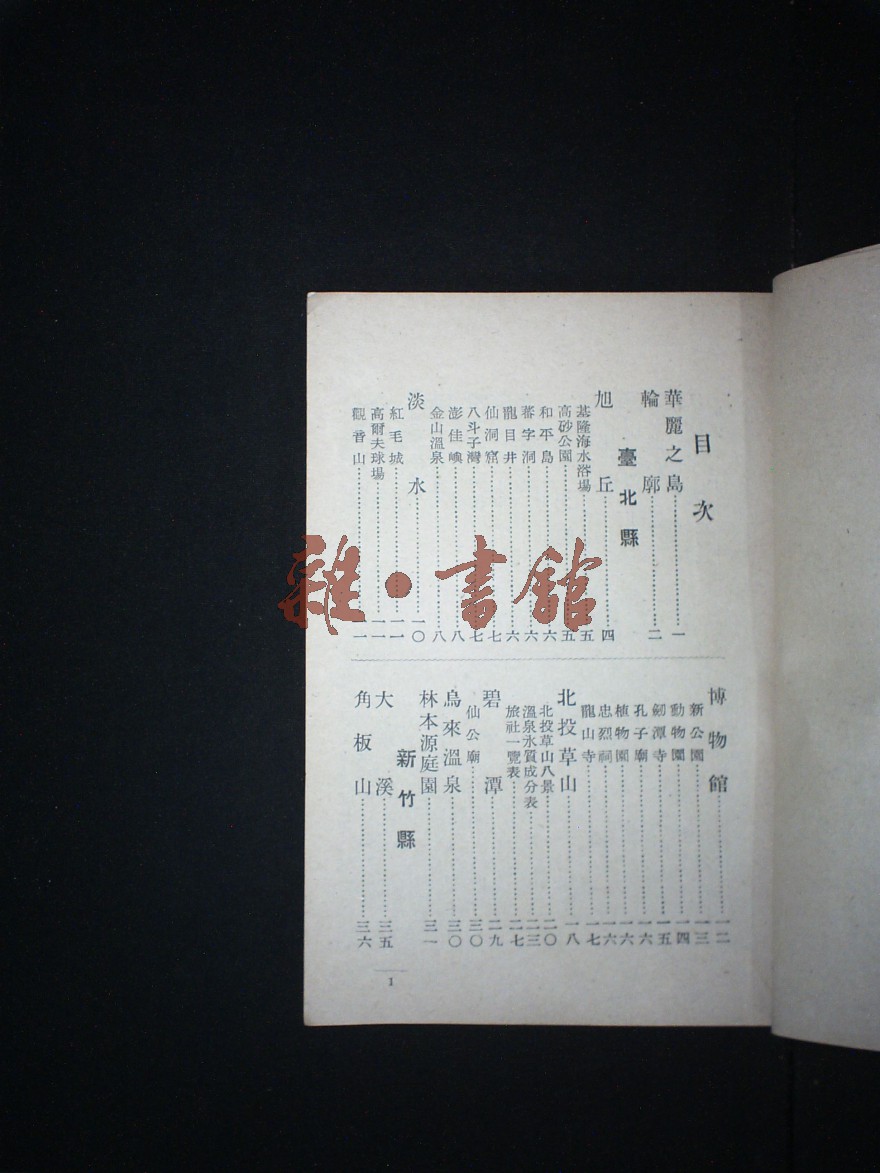 目次
華麗之島 一
輪廓 二
臺北縣
旭丘 四
基隆海水浴場 五
高砂公園 五
和平島 六
蕃字洞 六
龍目井 六
仙洞窟 七
八斗子灣 七
澎佳嶼 八
金山溫泉 八
淡水 一〇
紅毛城 一一
高爾夫球場 一一
觀音山 一一
博物館 一二
新公園 一三
動物園 一四
劒潭寺 一五
孔子廟 一六
植物園 一六
忠烈祠 一六
龍山寺 一七
北投草山 一八
北投草山八景 二〇
溫泉水質成分表 二三
旅社一覽表 二七
碧潭 二九
仙公廟 三〇
烏來溫泉 三〇
林本源庭園 三一
新竹縣
大溪 三五
角板山 三六
1
雜·書館